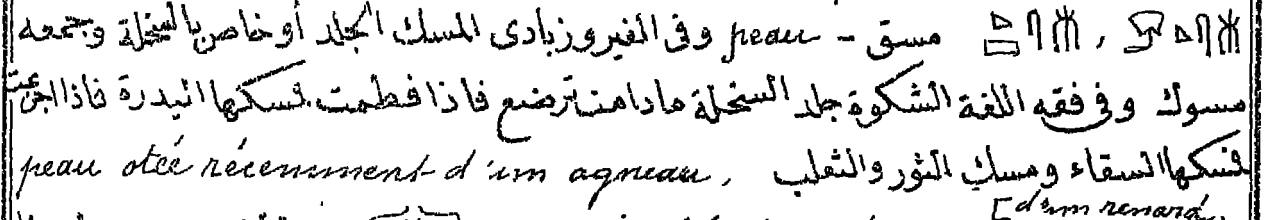 𓄟𓋴𓈎 , 𓄟𓋴𓈎 مسق - peau وفى الفيروزبادى المسك الجلد أو خاص بالسخلة وجمعه
مسوك وفى فقه اللغة الشكوة جلد السخلة مادامت ترضع فاذا فطمت فمسكها البدرة فاذا اجزعت
فمسكها السقاء ومسك الثور والثعلب peau otée récemment d'un agneau,
d'un renard